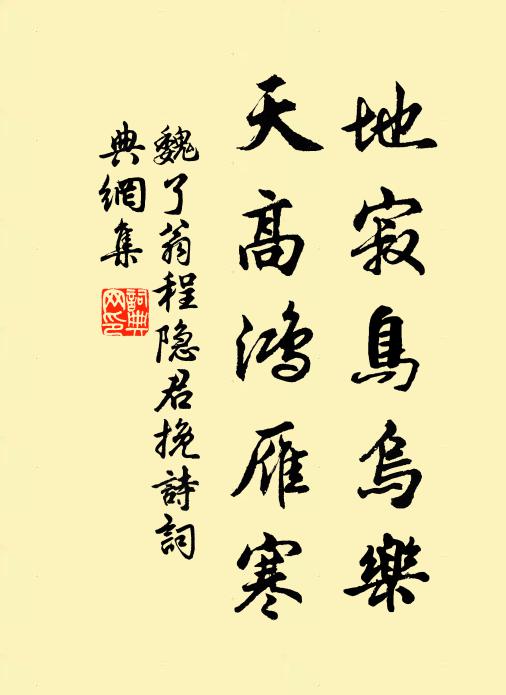 地寂鳥烏樂
天高鴻雁寒
魏了翁程隐君挽詩詞
典網集
詞典
网印